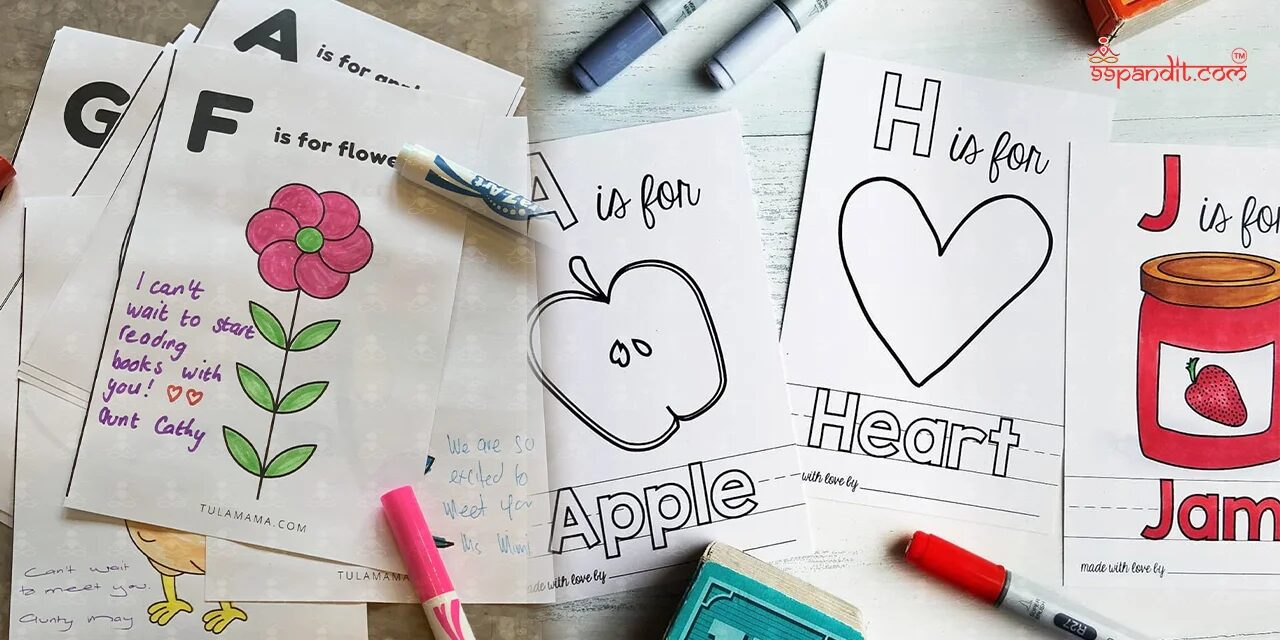 A is for
G
F is for flowe
I can't
wait to start
reading
books with
you!
Aunt Cathy
TULAMAMA.COM
TULAMAMA
Can't wait
to meet you.
Aunty May
We are so
excited to
meet you
A is for
Apple
made with love by
H is for
Heart
made with love by
J is for
Jam
made with love by
R27
99pandit.com
TM